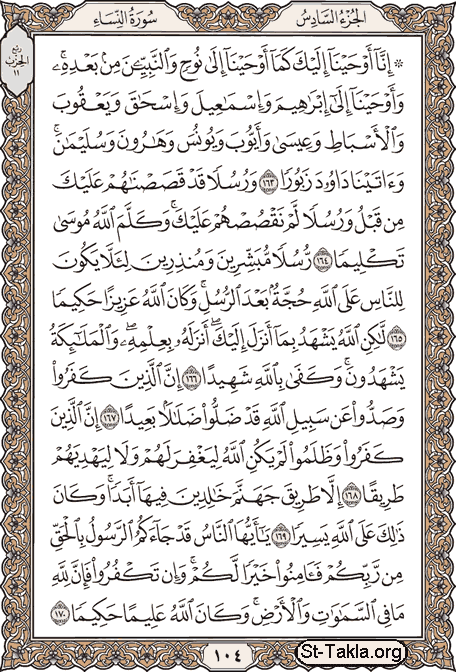 الجُزْءُ السَّادِسُ
سُورَةُ النِّسَاءِ
ربع
الحزب
١١
۞ إِنَّآ أَوْحَيْنَآ إِلَيْكَ كَمَآ أَوْحَيْنَآ إِلَىٰ نُوحٍ وَٱلنَّبِيِّـۧنَ مِنۢ بَعْدِهِۦۚ
وَأَوْحَيْنَآ إِلَىٰٓ إِبْرَٰهِيمَ وَإِسْمَٰعِيلَ وَإِسْحَٰقَ وَيَعْقُوبَ
وَٱلْأَسْبَاطِ وَعِيسَىٰ وَأَيُّوبَ وَيُونُسَ وَهَٰرُونَ وَسُلَيْمَٰنَۚ
وَءَاتَيْنَا دَاوُۥدَ زَبُورًا ١٦٣ وَرُسُلًا قَدْ قَصَصْنَٰهُمْ عَلَيْكَ
مِن قَبْلُ وَرُسُلًا لَّمْ نَقْصُصْهُمْ عَلَيْكَۚ وَكَلَّمَ ٱللَّهُ مُوسَىٰ
تَكْلِيمًا ١٦٤ رُّسُلًا مُّبَشِّرِينَ وَمُنذِرِينَ لِئَلَّا يَكُونَ
لِلنَّاسِ عَلَى ٱللَّهِ حُجَّةٌۢ بَعْدَ ٱلرُّسُلِۚ وَكَانَ ٱللَّهُ عَزِيزًا حَكِيمًا
١٦٥ لَّٰكِنِ ٱللَّهُ يَشْهَدُ بِمَآ أَنزَلَ إِلَيْكَۖ أَنزَلَهُۥ بِعِلْمِهِۦۖ وَٱلْمَلَٰٓئِكَةُ
يَشْهَدُونَۚ وَكَفَىٰ بِٱللَّهِ شَهِيدًا ١٦٦ إِنَّ ٱلَّذِينَ كَفَرُوا۟
وَصَدُّوا۟ عَن سَبِيلِ ٱللَّهِ قَدْ ضَلُّوا۟ ضَلَٰلًۢا بَعِيدًا ١٦٧ إِنَّ ٱلَّذِينَ
كَفَرُوا۟ وَظَلَمُوا۟ لَمْ يَكُنِ ٱللَّهُ لِيَغْفِرَ لَهُمْ وَلَا لِيَهْدِيَهُمْ
طَرِيقًا ١٦٨ إِلَّا طَرِيقَ جَهَنَّمَ خَٰلِدِينَ فِيهَآ أَبَدًاۚ وَكَانَ
ذَٰلِكَ عَلَى ٱللَّهِ يَسِيرًا ١٦٩ يَٰٓأَيُّهَا ٱلنَّاسُ قَدْ جَآءَكُمُ ٱلرَّسُولُ بِٱلْحَقِّ
مِن رَّبِّكُمْ فَـَٔامِنُوا۟ خَيْرًا لَّكُمْۚ وَإِن تَكْفُرُوا۟ فَإِنَّ لِلَّهِ
مَا فِى ٱلسَّمَٰوَٰتِ وَٱلْأَرْضِۚ وَكَانَ ٱللَّهُ عَلِيمًا حَكِيمًا ١٧٠
١٠٤
St-Takla.org